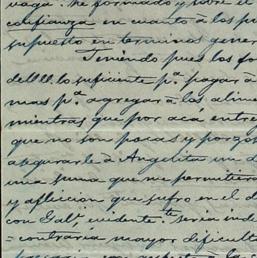 vaga. He formado y sobre el
confianza en cuanto a los pu
supuesto en terminos gener
Teniendo pues los fo
de U.U. lo suficiente pª pagar a
mas pª agregar a los alime
mientras que por aca entre
que no son pocas y porgo
asegurarle a Angelita un d
una suma que me permitiera
y afliccion que sufro en el d
con Gabl, evidente.te seria ind
=contraria mayor dificult